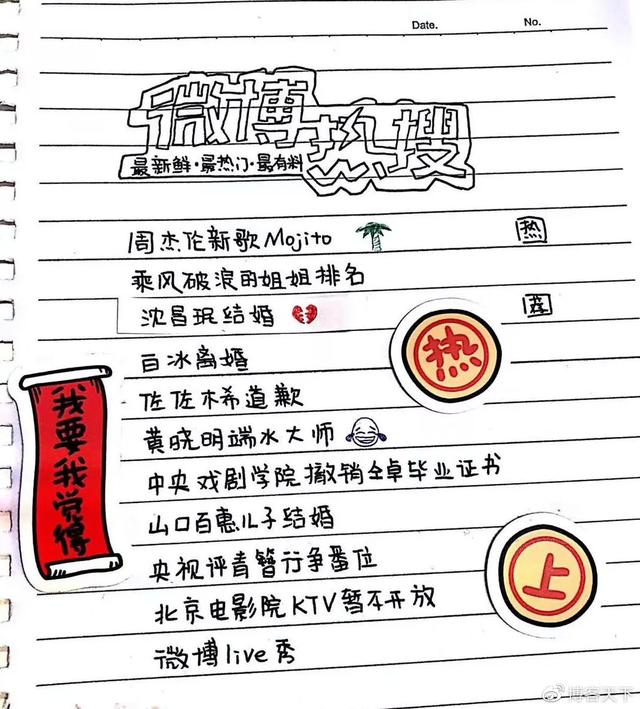 Date.
No.
微博热搜
最新鲜·最热门·最有料
周杰伦新歌Mojito
热
乘风破浪的姐姐排名
沈昌珉结婚
荐
热
白冰离婚
我要我觉得
佐佐木希道歉
黄晓明端水大师
中央戏剧学院撤销仝卓毕业证书
山口百惠儿子结婚
央视评青簪行争番位
上
北京电影院KTV暂不开放
微博live秀
博客天下